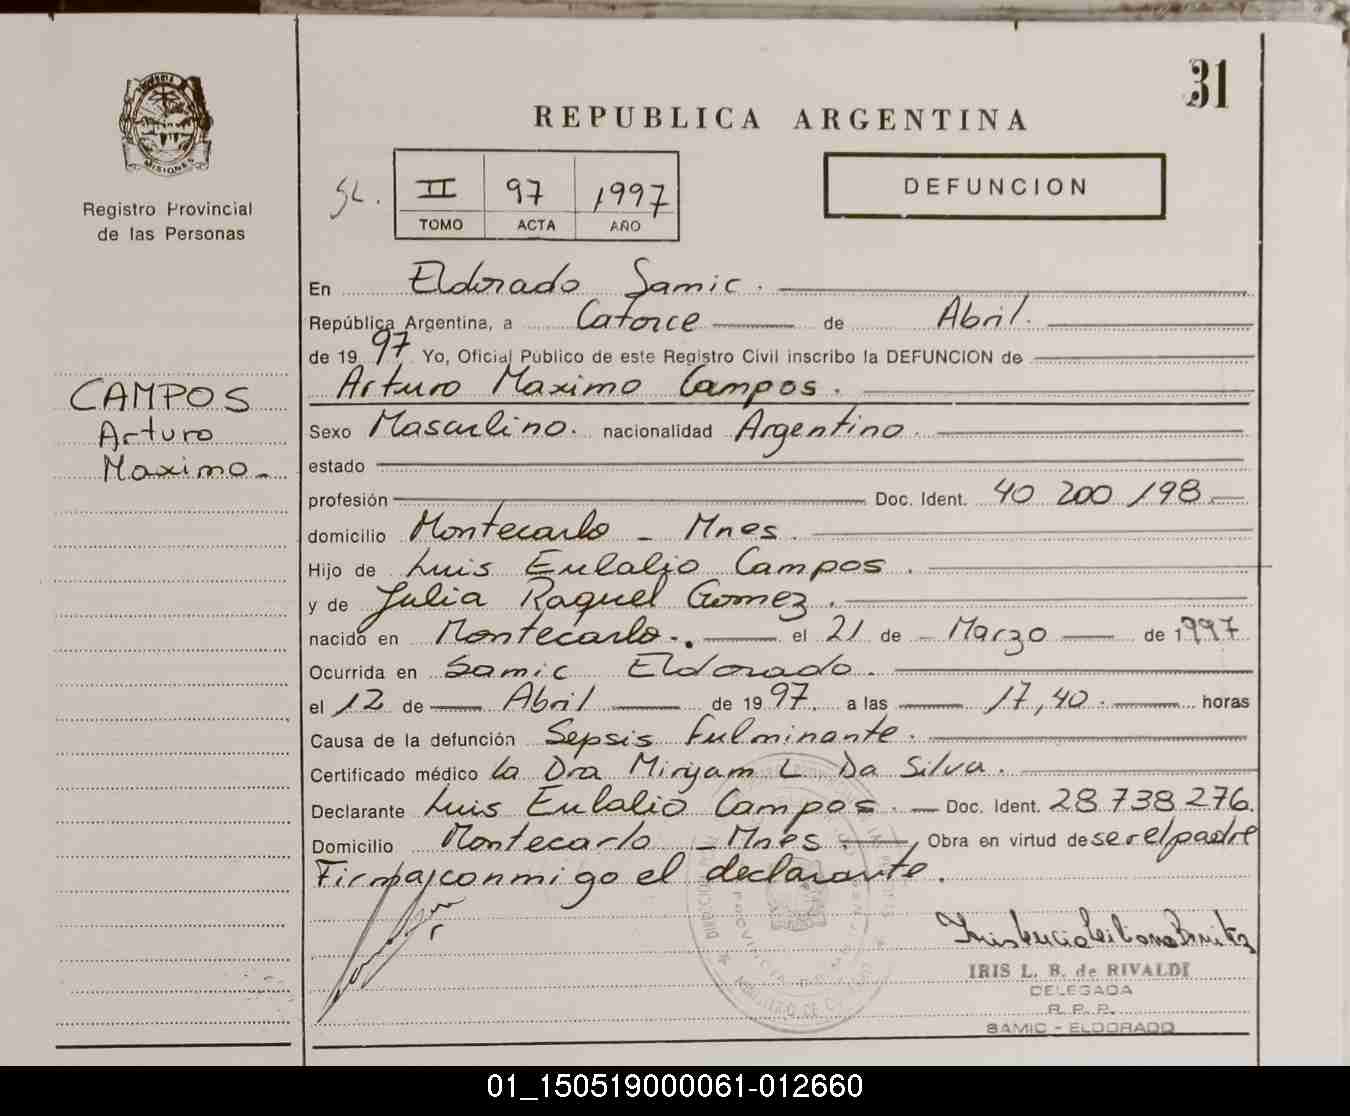 31
REPUBLICA ARGENTINA
DEFUNCION
II 97 1997
TOMO ACTA AÑO
MISIONES
Registro Provincial
de las Personas
CAMPOS
Arturo
Maximo
En Eldorado Samic.
República Argentina, a Catorce de Abril.
de 19 97 Yo, Oficial Publico de este Registro Civil inscribo la DEFUNCION de
Arturo Maximo Campos.
Sexo Masculino. nacionalidad Argentino.
estado
profesión Doc. Ident. 40 200 198
domicilio Montecarlo - Mnes.
Hijo de Luis Eulalio Campos.
y de Julia Raquel Gomez.
nacido en Montecarlo. el 21 de Marzo de 1997
Ocurrida en Samic Eldorado.
el 12 de Abril de 19 97. a las 17,40. horas
Causa de la defunción Sepsis fulminante.
Certificado médico la Dra Miryam L Da Silva.
Declarante Luis Eulalio Campos. Doc. Ident. 28 738 276.
Domicilio Montecarlo - Mnes. Obra en virtud de ser el padre
Firma conmigo el declarante.
IRIS L. B. de RIVALDI
DELEGADA
R. P. P.
SAMIC - ELDORADO
01_150519000061-012660